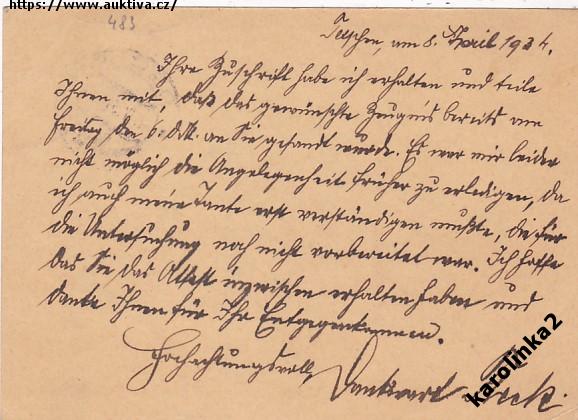 https://www.auktiva.cz/
483
Teschen, am 8. April 1934.
Ihre Zuschrift habe ich erhalten und teile
Ihnen mit, daß das gewünschte Zeugnis bereits am
Freitag den 6. d.M. an Sie gesandt wurde. Es war mir leider
nicht möglich die Angelegenheit früher zu erledigen, da
ich auch meine Tante erst verständigen mußte, die für
die Untersuchung noch nicht vorbereitet war. Ich hoffe
das Sie das Attest inzwischen erhalten haben und
danke Ihnen für Ihr Entgegenkommen.
Hochachtungsvoll
karolinka2